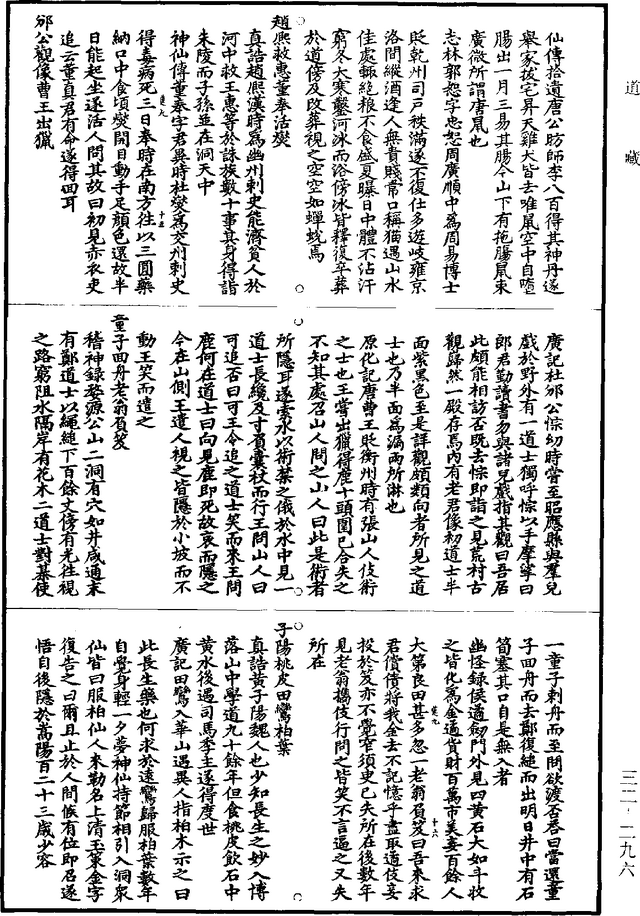 道藏
仙傳拾遺唐公昉師李八百得其神丹遂
舉家拔宅昇天雞犬皆去唯鼠空中自墮
腸出一月三易其腸今山下有拖腸鼠束
廣微所謂唐鼠也
志林郭恕字忠恕周廣順中為周易博士
貶乾州司戶秩滿遂不復仕多遊岐雍京
洛間縱酒逢人無貴賤常口稱猫遇山水
佳處輒絕粮不食盛夏曝日中體不沾汗
窮冬大寒鑿河冰而浴傍冰皆釋後卒葬
於道傍及改葬視之空空如蟬蛻焉
趙熙救惠董奉活燮
真誥趙熙漢時為幽州刺史能濟貧人於
河中救王惠等於誅族數十事其身得詣
朱陵而子孫並在洞天中
神仙傳董奉字君異時杜燮為交州刺史
十五
得毒病死三日奉時在南方往以三圓藥
納口中食頃燮開目動手足顏色還故半
日能起坐遂活人問其故曰初見赤衣吏
追云董真君有命遂得回耳
邠公觀像曹王出獵
廣記杜邠公悰幼時嘗至昭應縣與羣兒
戲於野外有一道士獨呼悰以手摩挲曰
郎君勤讀書勿與諸兒戲指其觀曰吾居
此頗能相訪否既去悰即詣之見荒村古
觀歸然一殿存焉內有老君像初道士半
面紫黑色至是詳觀頗類向者所見之道
士也乃半面為漏雨所淋也
原化記唐曹王貶衡州時有張山人伎術
之士也王嘗出獵得鹿十頭圍已合失之
不知其處召山人問之山人曰此是術者
所隱耳遂索水以術禁之俄於水中見一
道士長纔及寸負囊杖而行王問山人曰
可追否曰可王令追之道士笑而來王問
鹿何在道士曰向見鹿即死故哀而隱之
今在山側王遣人視之皆隱於小坡而不
動王笑而遣之
童子回舟老翁負笈
稽神錄婺源公山二洞有穴如井咸通末
有鄭道士以繩縋下百餘丈傍有光往視
之路窮阻水隔岸有花木二道士對棊使
一童子刺舟而至問欲渡否答曰當還童
子回舟而去鄭復縋而出明日井中有石
筍塞其口自是無入者
幽怪錄侯遹劒門外見四黃石大如斗收
之皆化為金遹貨財百萬市美妾百餘人
大第良田甚多忽一老翁負笈曰吾來求
十六
君償債將我金去不記憶乎盡取遹妓妾
投於笈亦不覺窄須臾已失所在後數年
見老翁攜伎行問之皆笑不言逼之又失
所在
子陽桃皮田鸞柏葉
真誥黃子陽魏人也少知長生之妙入博
落山中學道九十餘年但食桃皮飲石中
黃水後遇司馬季主遂得度世
廣記田鸞入華山遇異人指柏木示之曰
此長生藥也何求於遠鸞歸服柏葉數年
自覺身輕一夕夢神仙持節相引入洞衆
仙皆曰服柏仙人來勒名上清玉策金字
復告之曰爾且止於人間候有位即召遂
悟自後隱於嵩陽百二十三歲少容
三二·二九六